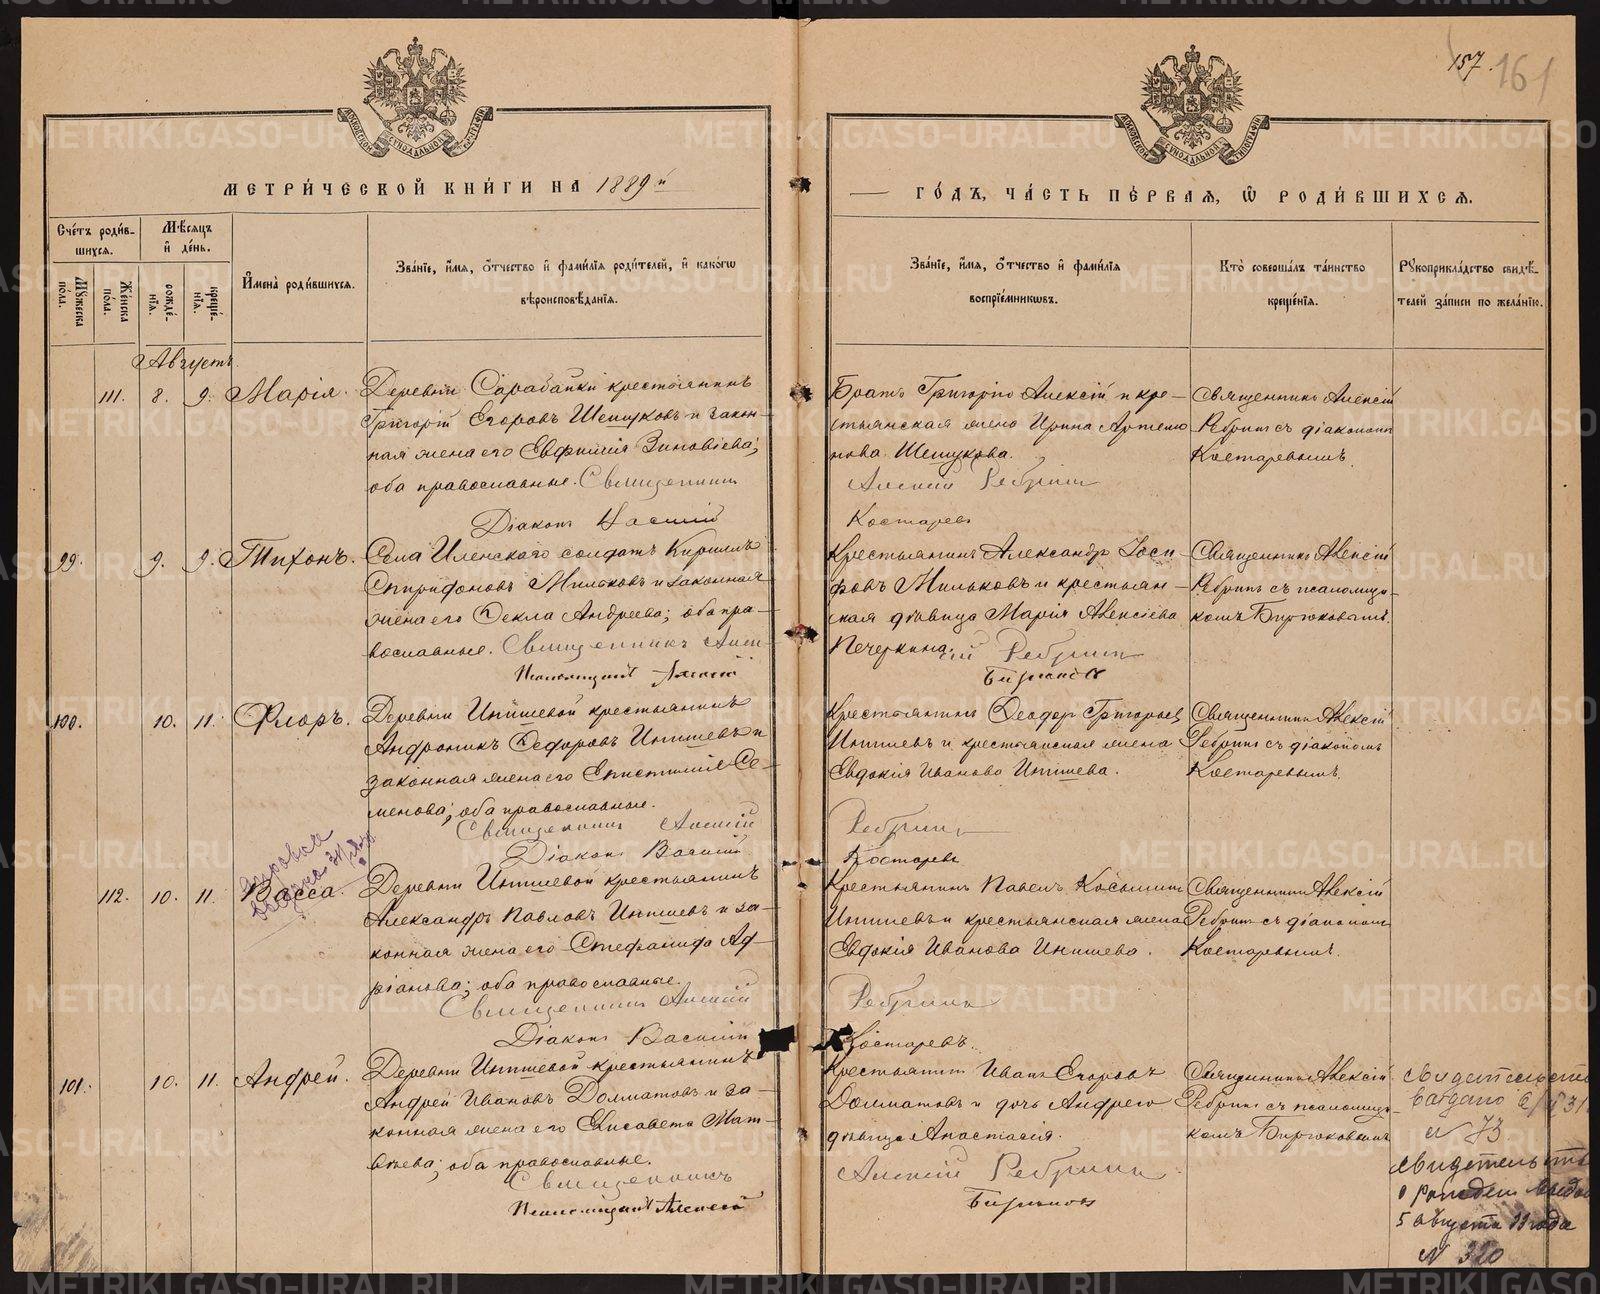 157.
161
МОСКОВСКОЙ СѴНОДАЛЬНОЙ ТИПОГРАФІИ
МОСКОВСКОЙ СѴНОДАЛЬНОЙ ТИПОГРАФІИ
МЕТРИ́ЧЕСКОЙ КНИ́ГИ НА 1889й
ГО́ДЪ, ЧА́СТЬ ПЕ́РВАЯ, Ѡ РОДИ́ВШИХСЯ.
Сче́тъ роди́в-
шихся.
Мꙋ́жеска по́ла.
Же́нска по́ла.
Мѣ́сяцъ
и҆ де́нь.
рожде́-
нїя.
креще́-
нїя.
И҆мена̀ роди́вшихся.
Зва́нїе, и҆́мя, ѻ҆́тчество и҆ фамі́лїя роди́телей, и҆ како́гѡ
вѣроисповѣ́данїя.
Зва́нїе, и҆́мя, ѻ҆́тчество и҆ фамі́лїя
воспрїе́мникѡвъ.
Кто̀ соверша́лъ та́инство
креще́нїя.
Рꙋкоприкла́дство свидѣ́-
телей за́писи по жела́нїю.
Августъ
111. 8. 9. Марія.
Деревни Сарабайки крестьянинъ
Григорій Егоровъ Шешуковъ и закон-
ная жена его Евфимія Зиновіева;
оба православные. Священникъ
Діаконъ Василій
Братъ Григорію Алексій и кре-
стьянская жена Ирина Артемо
нова Шешукова.
Алексій Ребринъ
Костаревъ
Священникъ Алексій
Ребринъ съ діакономъ
Костаревымъ.
99. 9. 9. Тихонъ.
Села Иленскаго солдатъ Кириллъ
Спиридоновъ Мильковъ и законная
жена его Ѳекла Андреева; оба пра-
вославные. Священникъ Алек-
Псаломщикъ Алексій
Крестьянинъ Александръ Іоси-
фовъ Мильковъ и крестьян-
ская дѣвица Марія Алексіева
Печеркина. сій Ребринъ
Бирюковъ
Священникъ Алексій
Ребринъ съ псаломщи-
комъ Бирюковымъ.
100. 10. 11. Флоръ.
Деревни Инишевой крестьянинъ
Андроникъ Ѳедоровъ Инишевъ и
законная жена его Епистимія Се-
менова; оба православные.
Священникъ Алексій
Діаконъ Василій
Крестьянинъ Ѳеодоръ Григорьевъ
Инишевъ и крестьянская жена
Евдокія Иванова Инишева.
Ребринъ
Костаревъ
Священникъ Алексій
Ребринъ съ діакономъ
Костаревымъ.
112. 10. 11. Васса.
Деревни Инишевой крестьянинъ
Александръ Павловъ Инишевъ и за-
конная жена его Стефанида Ад-
ріанова; оба православные.
Священникъ Алексій
Діаконъ Василій
Крестьянинъ Павелъ Косьминъ
Инишевъ и крестьянская жена
Евдокія Иванова Инишева.
Ребринъ
Костаревъ.
Священникъ Алексій
Ребринъ съ діакономъ
Костаревымъ.
101. 10. 11. Андрей.
Деревни Инишевой крестьянинъ
Андрей Ивановъ Долматовъ и за-
конная жена его Елисавета Мат-
вѣева; оба православные.
Священникъ
Псаломщикъ Алексѣй
Крестьянинъ Иванъ Егоровъ
Долматовъ и дочь Андрею
дѣвица Анастасія.
Алексій Ребринъ
Бирюковъ
Священникъ Алексій
Ребринъ съ псаломщи-
комъ Бирюковымъ
N 73
5 августа 33 года
N 320
METRIKI.GASO-URAL.RU